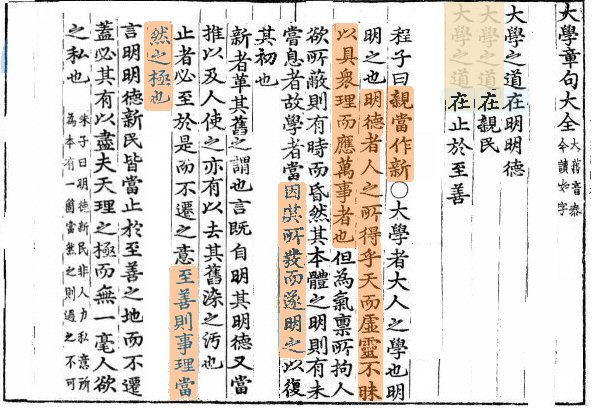 大學章句大全
大舊音泰
今讀如字
大學之道在明明德
大學之道在親民
大學之道在止於至善
程子曰親當作新○大學者大人之學也明
明之也明德者人之所得乎天而虛靈不昧
以具衆理而應萬事者也但為氣稟所拘人
欲所蔽則有時而昏然其本體之明則有未
嘗息者故學者當因其所發而遂明之以復
其初也
新者革其舊之謂也言既自明其明德又當
推以及人使之亦有以去其舊染之汚也
止者必至於是而不遷之意至善則事理當
然之極也
言明明德新民皆當止於至善之地而不遷
蓋必其有以盡夫天理之極而無一毫人欲
之私也
朱子曰明德新民非人力私意所
為本有一箇當然之則過之不可